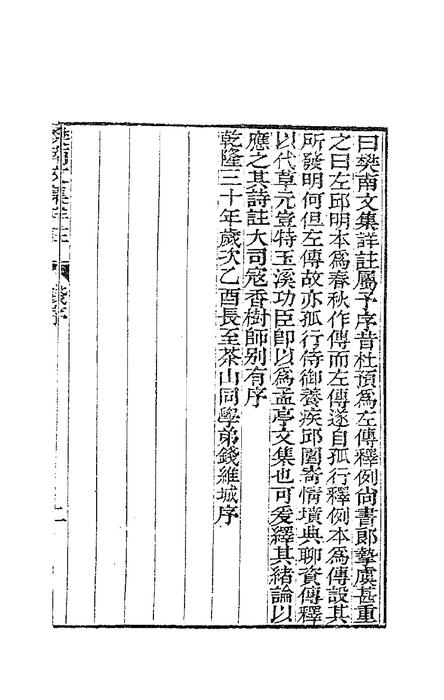 曰樊南文集詳註屬予序昔杜預爲左傳釋例尙書郞摯虞甚重
之曰左邱明本爲春秋作傳而左傳遂自孤行釋例本爲傳設其
所發明何但左傳故亦孤行侍御養疾邱園寄情墳典聊資傳釋
以代草元豈特玉溪功臣卽以爲孟亭文集也可爰繹其緒論以
應之其詩註大司寇香樹師别有序
乾隆三十年歲次乙酉長至茶山同學弟錢維城序